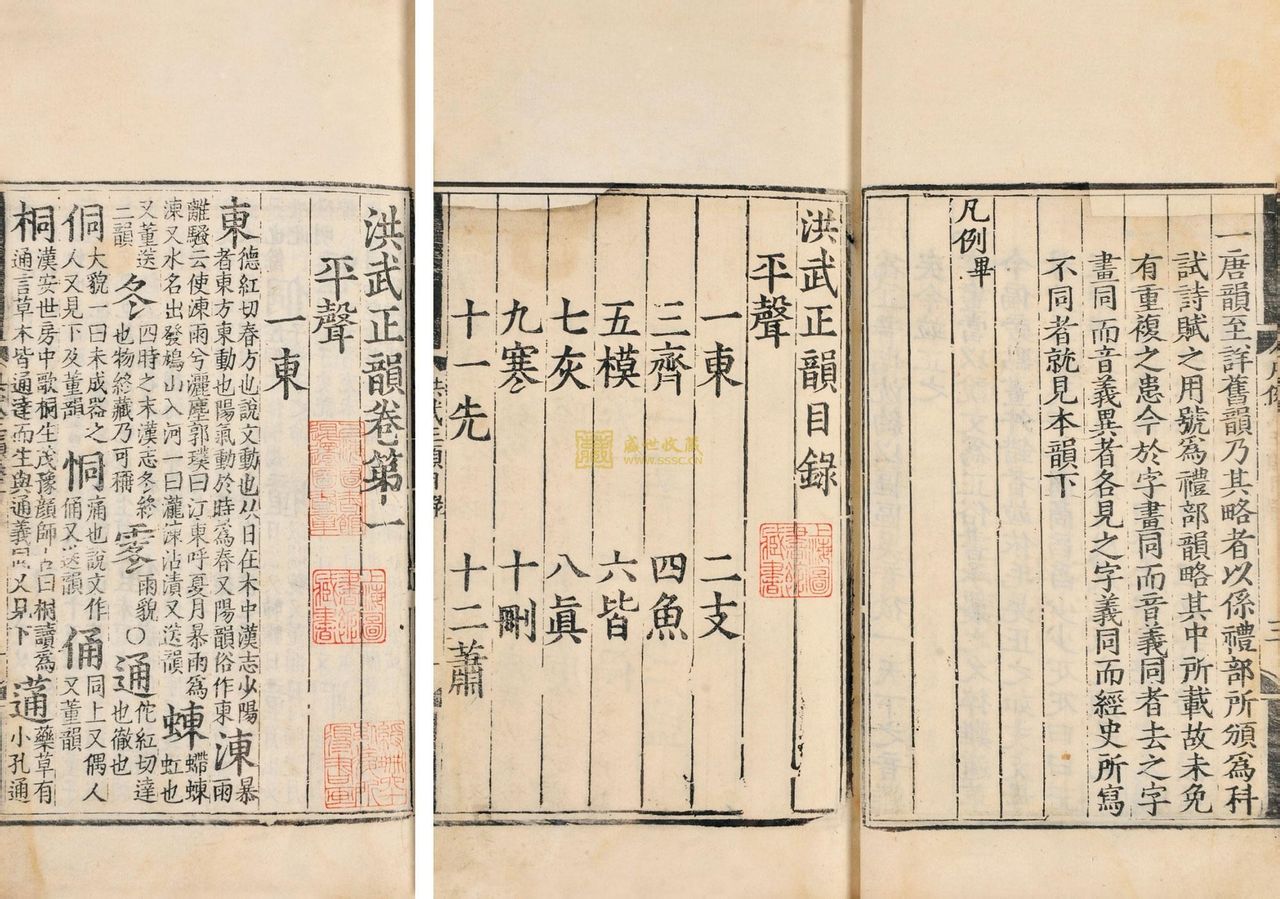 一唐韻至詳舊韻乃其略者以係禮部所頒爲科
試詩賦之用號爲禮部韻略其中所載故未免
有重複之患今於字畫同而音義同者去之字
畫同而音義異者各見之字義同而經史所寫
不同者就見本韻下
凡例畢
洪武正韻目錄
平聲
一東 二支
三齊 四魚
五模 六皆
七灰 八眞
九寒 十刪
十一先 十二蕭
盛世收藏
WWW.SSSC.CN
洪武正韻卷第一
平聲
一東
東德紅切春方也說文動也从日在木中漢志少陽者東方東動也陽氣動於時爲春又陽韻俗作東涷暴雨
離騷云使涷雨兮灑塵郭璞曰江東呼夏月暴雨爲涷又水名出發鳩山入河一曰瀧涷沾漬又送韻蝀螮蝀虹也
又董送二韻冬四時之末漢志冬終也物終藏乃可稱雨貌○通佗紅切達也徹也
侗大貌一曰未成器之人又見下及董韻恫痛也說文作俑又送韻俑同上又偶人又董韻
桐漢安世房中歌桐生茂豫顔師古曰桐讀爲通言草木皆通達而生與通義同又見下蓪藥草有小孔通